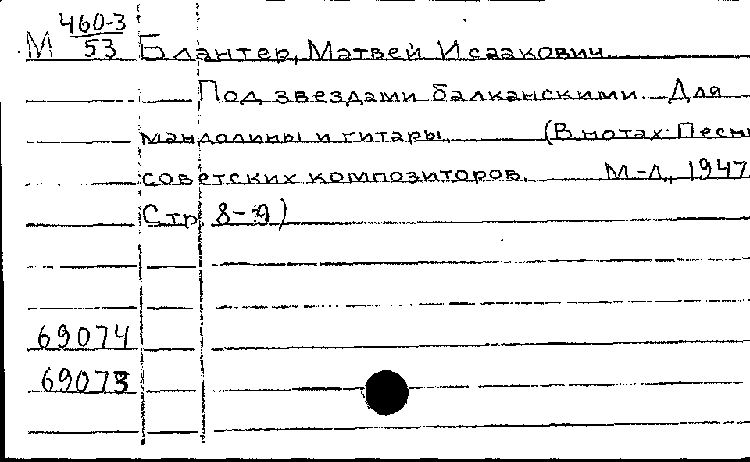 М 460-3
53 Блантер, Матвей Исаакович.
Под звездами балканскими. Для
мандолины и гитары. (В нотах: Песни
советских композиторов. М-Л., 1947.
Стр. 8-9)
69074
69073